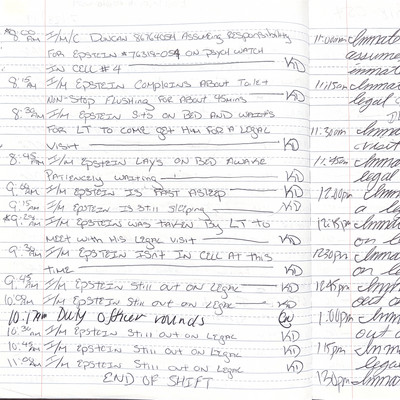 8:00 AM I/M/C Duncan 86764054 Assuming Responsibility
for Epstein #76318-054 on Psych Watch
in Cell #4 KD
8:15 AM I/M Epstein Complains About Toilet
Non-Stop Flushing for About 45mins KD
8:30 AM I/M Epstein Sits on Bed and Waits
for LT to come get Him for a Legal
Visit KD
8:45 AM I/M Epstein Lays on Bed Awake
Patiencely Waiting KD
9:00 AM I/M Epstein is Fast Asleep KD
9:15 AM I/M Epstein is Still Sleeping KD
I/M Epstein was taken by LT to
meet with His Legal Visit KD
9:30 AM I/M Epstein Isn't in Cell at this
time KD
9:45 AM I/M Epstein Still out on Legal KD
I/M Epstein Still out on Legal KD
10:17am Duty Officer rounds
10:30 AM I/M Epstein Still out on Legal KD
10:45 AM I/M Epstein Still out on Legal KD
11:00 AM I/M Epstein Still out on Legal KD
END OF SHIFT
11:00am Inmate
assume
inmate
11:15am Inmate
legal
11:30am Inmate
visit
11:45am Inmate
legal
12:00pm Inmate
a leg
12:15pm Inmate
on le
12:30pm Inma
on le
12:45pm Inma
1:00pm Inma
out
1:15pm Inma
legal
1:30pm Inma